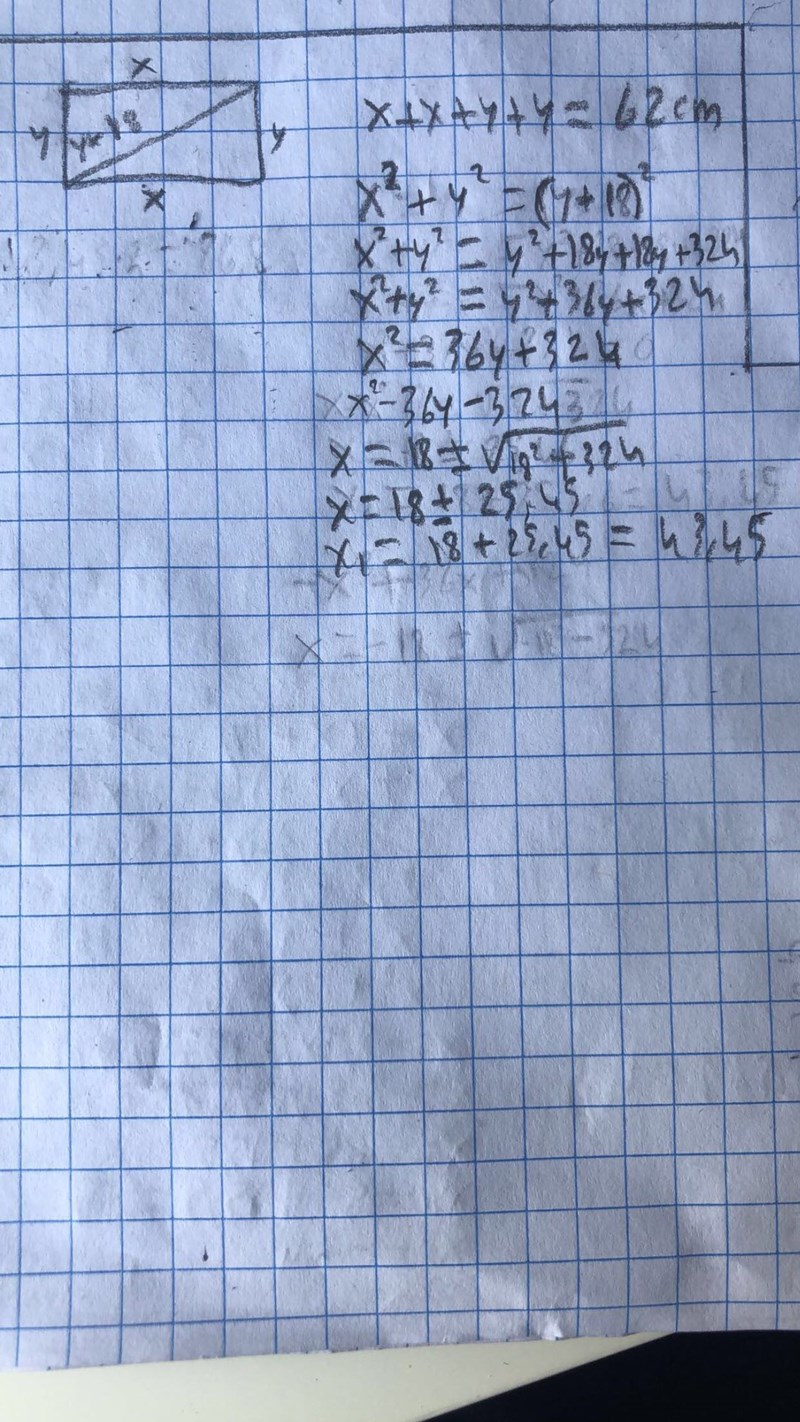 x
y y+18 y
x
x+x+y+y = 62cm
x² + y² = (y+18)²
x²+y² = y²+18y+18y+324
x²+y² = y²+36y+324
x² = 36y+324
x²-36y-324
x = 18 ± √18²+324
x = 18 ± 25,45
x₁ = 18 + 25,45 = 43,45
x = -18 ± √